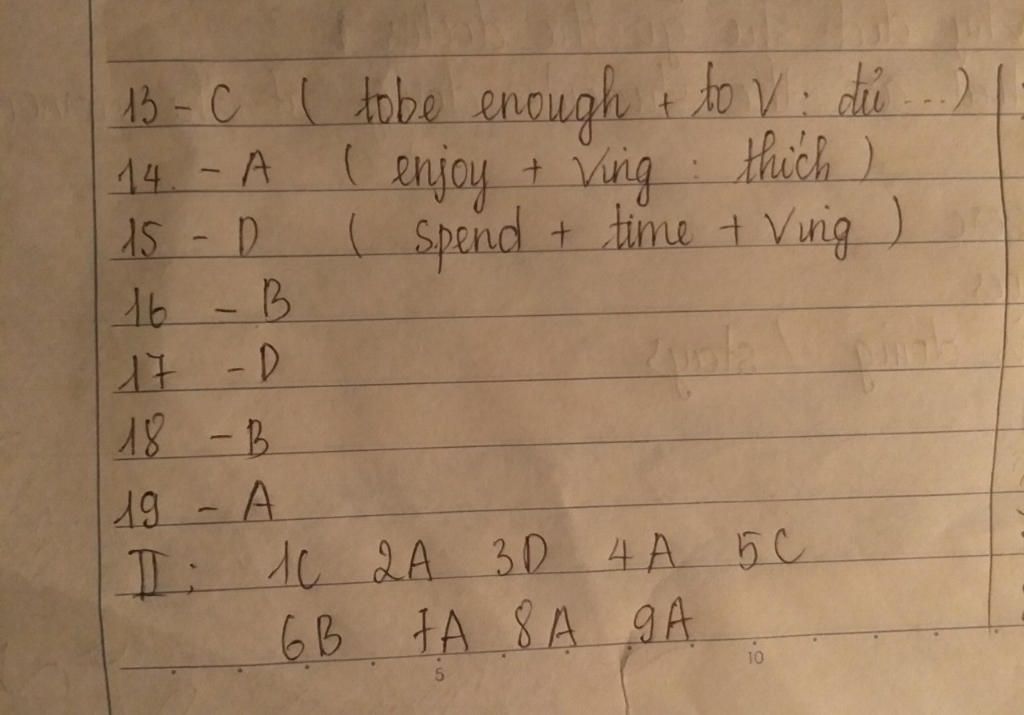 13 - C ( tobe enough + to V : đủ ... )
14. - A ( enjoy + Ving : thích )
15 - D ( spend + time + Ving )
16 - B
17 - D
18 - B
19 - A
II : 1C 2A 3D 4A 5C
6B 7A 8A 9A
5 10